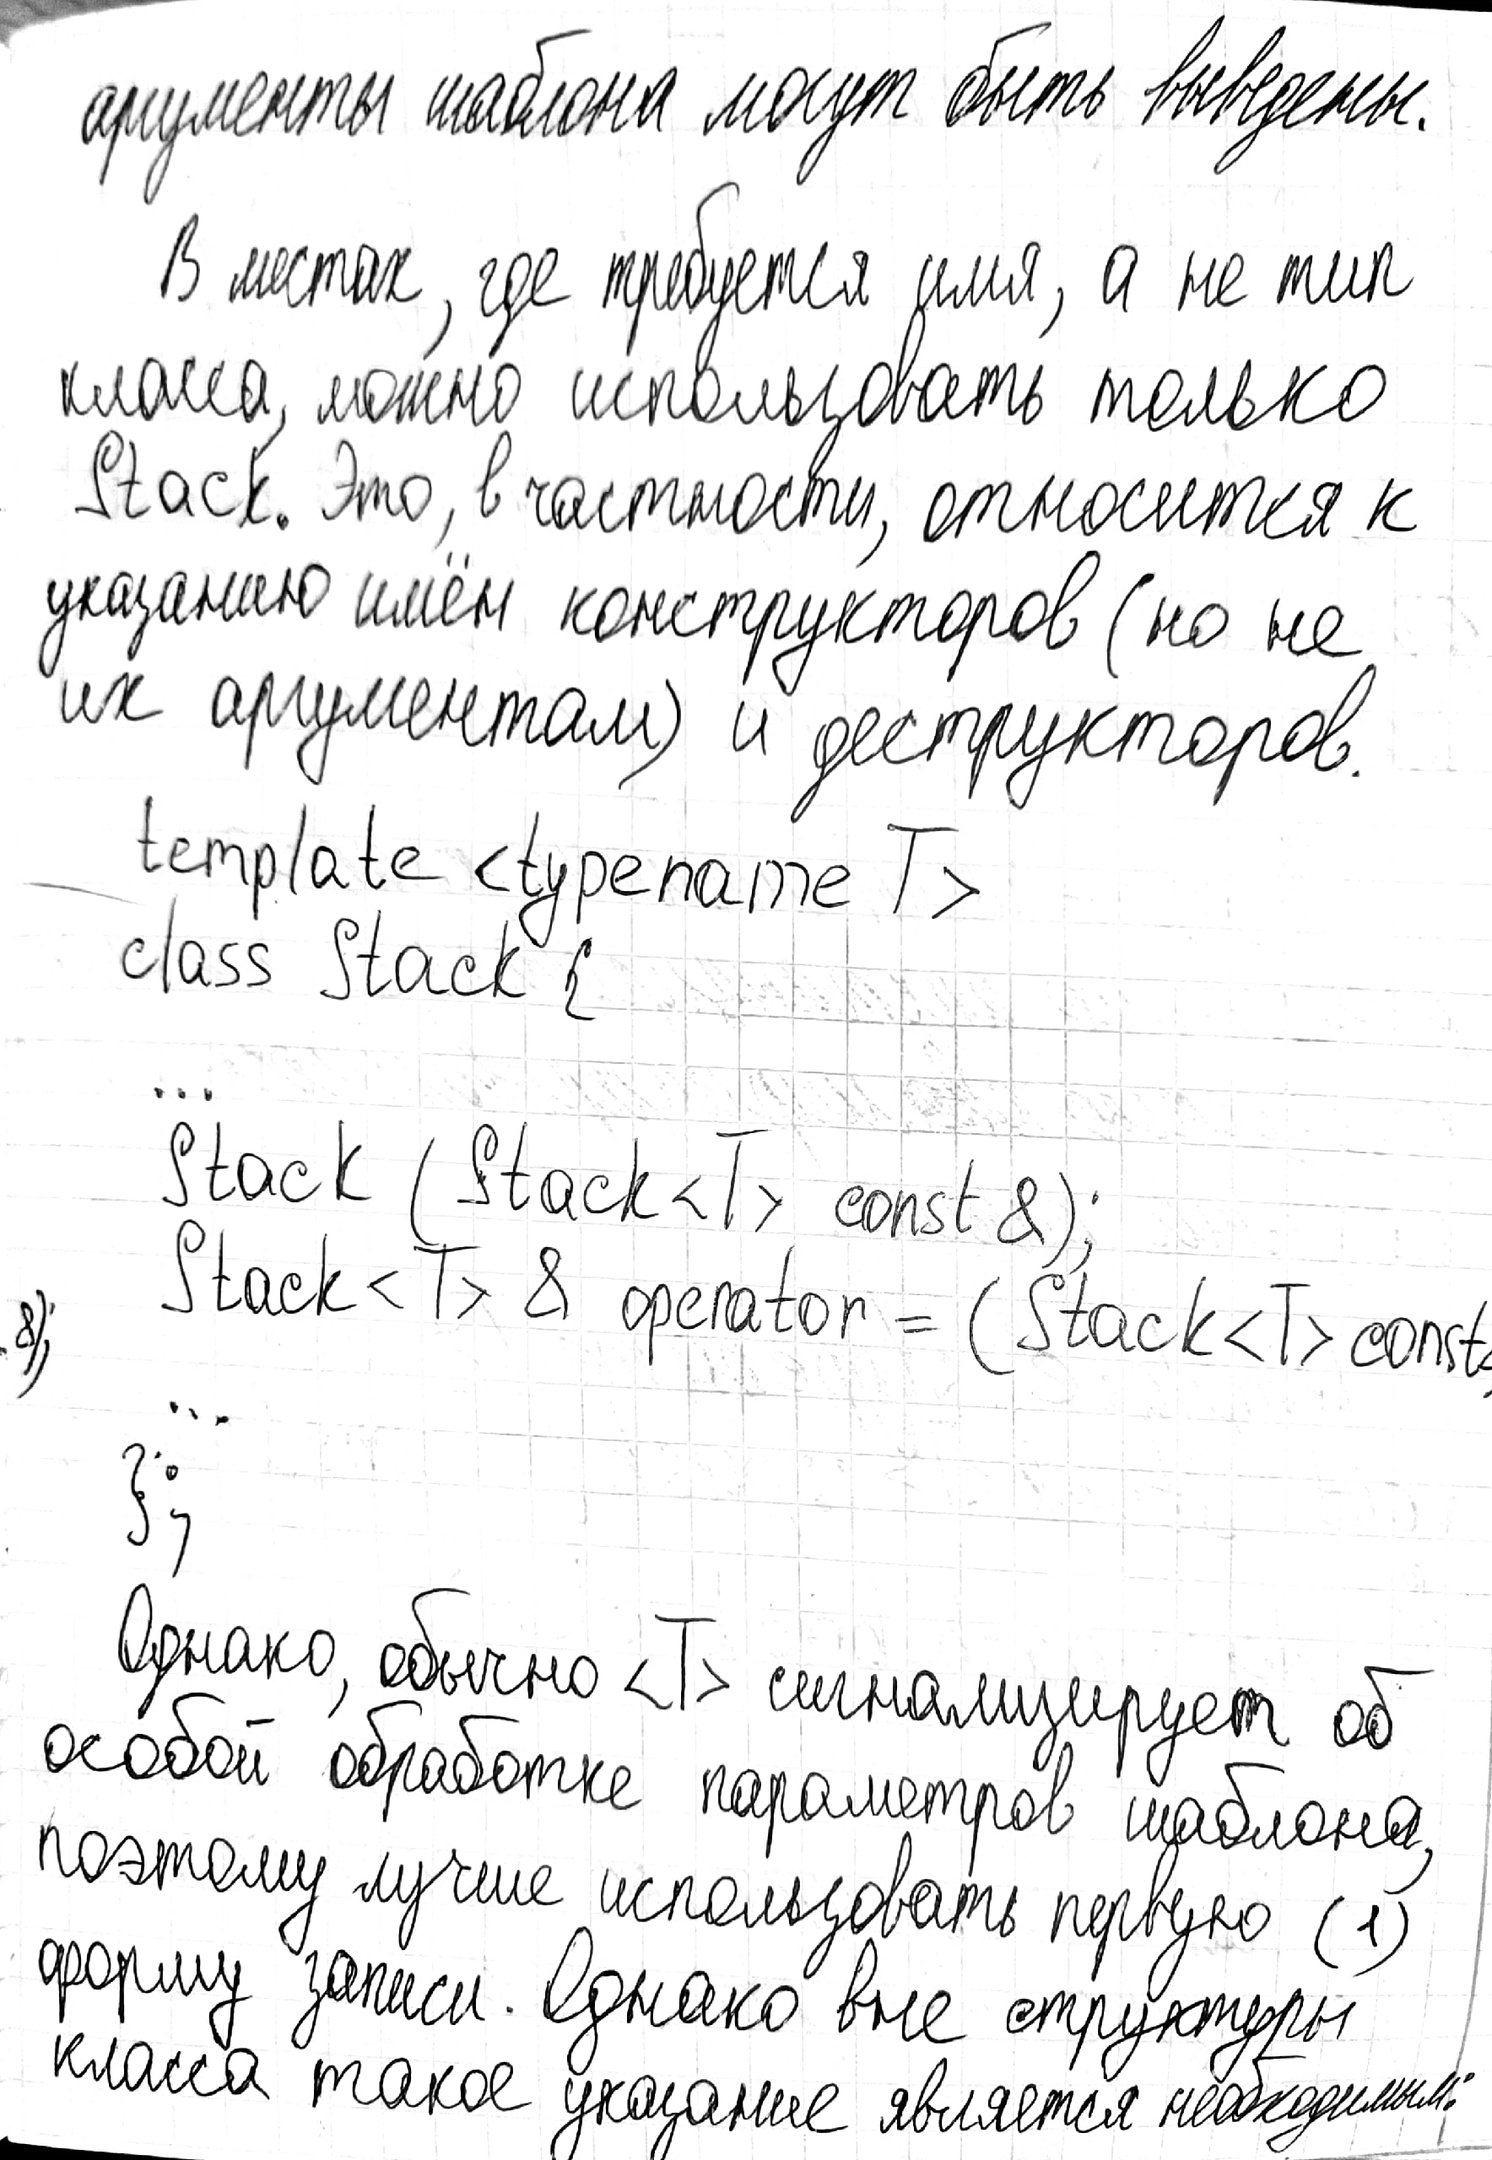 аргументы шаблона могут быть выведены.
В местах, где требуется имя, а не тип
класса, можно использовать только
Stack. Это, в частности, относится к
указанию имён конструкторов (но не
их аргументам) и деструкторов.
template <typename T>
class Stack {
...
Stack (Stack<T> const &);
Stack<T> & operator = (Stack<T> const
&);
...
};
Однако, обычно <T> сигнализирует об
особой обработке параметров шаблона,
поэтому лучше использовать первую (1)
форму записи. Однако вне структуры
класса такое указание является необходимым: